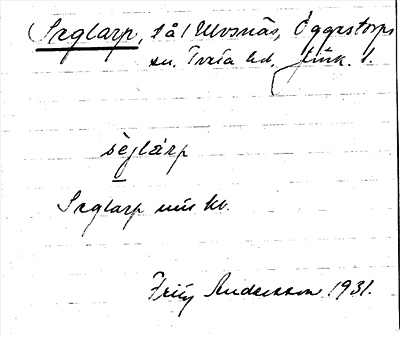 Seglarp, på Ulvsnäs, Öggestorps
sn. Tveta hd. Jönk. l.
sèglárp
Seglarp uu kv.
Fritz Andersson 1931.